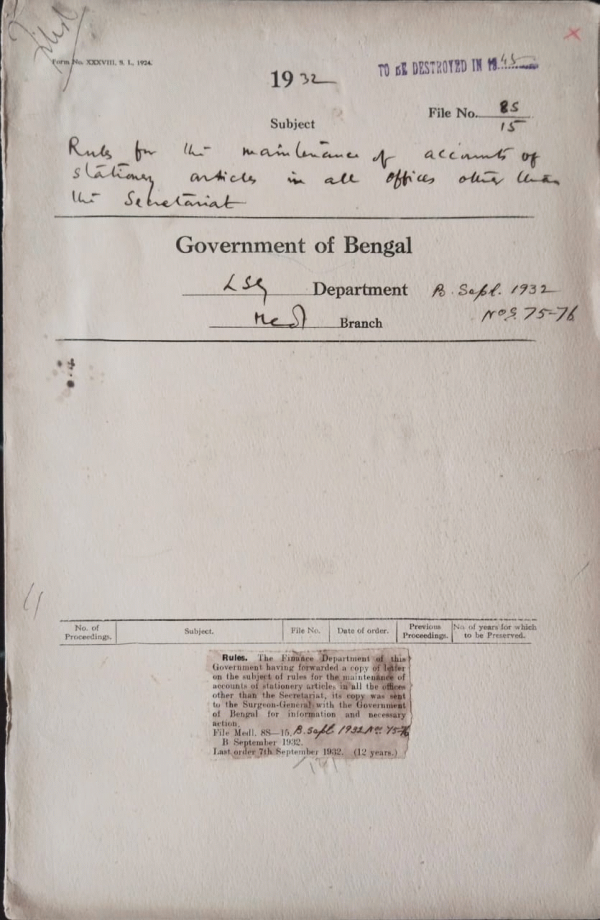 Form No. XXXVIII, S. L., 1924.
1932
TO BE DESTROYED IN 1945
File No. 8S
15
Subject
Rules for the maintenance of accounts of
stationery articles in all offices other than
the Secretariat
Government of Bengal
LSG Department B. Sept. 1932
Medl Branch Nos. 75-76
No. of Proceedings. Subject. File No. Date of order. Previous Proceedings. No. of years for which to be Preserved.
Rules. The Finance Department of this
Government having forwarded a copy of letter
on the subject of rules for the maintenance of
accounts of stationery articles in all the offices
other than the Secretariat, its copy was sent
to the Surgeon-General with the Government
of Bengal for information and necessary
action.
File Medl. 8S—15. B. Sept. 1932 Nos. 75-76
B September 1932.
Last order 7th September 1932. (12 years.)